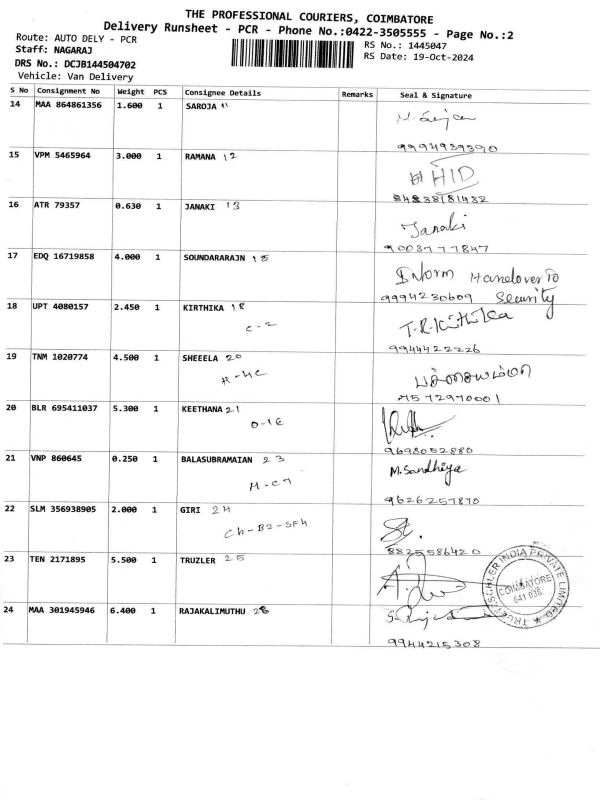 THE PROFESSIONAL COURIERS, COIMBATORE
Delivery Runsheet - PCR - Phone No.:0422-3505555 - Page No.:2
Route: AUTO DELY - PCR
RS No.: 1445047
Staff: NAGARAJ
RS Date: 19-Oct-2024
DRS No.: DCJB144504702
Vehicle: Van Delivery
S No Consignment No Weight PCS Consignee Details Remarks Seal & Signature
14 MAA 864861356 1.600 1 SAROJA 11
9994939390
15 VPM 5465964 3.000 1 RAMANA 12
16 ATR 79357 0.630 1 JANAKI 13 Janaki
9003777847
17 EDQ 16719858 4.000 1 SOUNDARARAJN 15
Inform Handover To
9994230609 Security
18 UPT 4080157 2.450 1 KIRTHIKA 18
C-2
9944422226
19 TNM 1020774 4.500 1 SHEEELA 20
H-4C
7572970001
20 BLR 695411037 5.300 1 KEETHANA 21
D-1E
9698052880
21 VNP 860645 0.250 1 BALASUBRAMAIAN 23 M.Sandhiya
M-C7
9626257870
22 SLM 356938905 2.000 1 GIRI 24
Ch-B2-SF4
8825586420
23 TEN 2171895 5.500 1 TRUZLER 25
COIMBATORE
641 038.
24 MAA 301945946 6.400 1 RAJAKALIMUTHU 28
9944215308